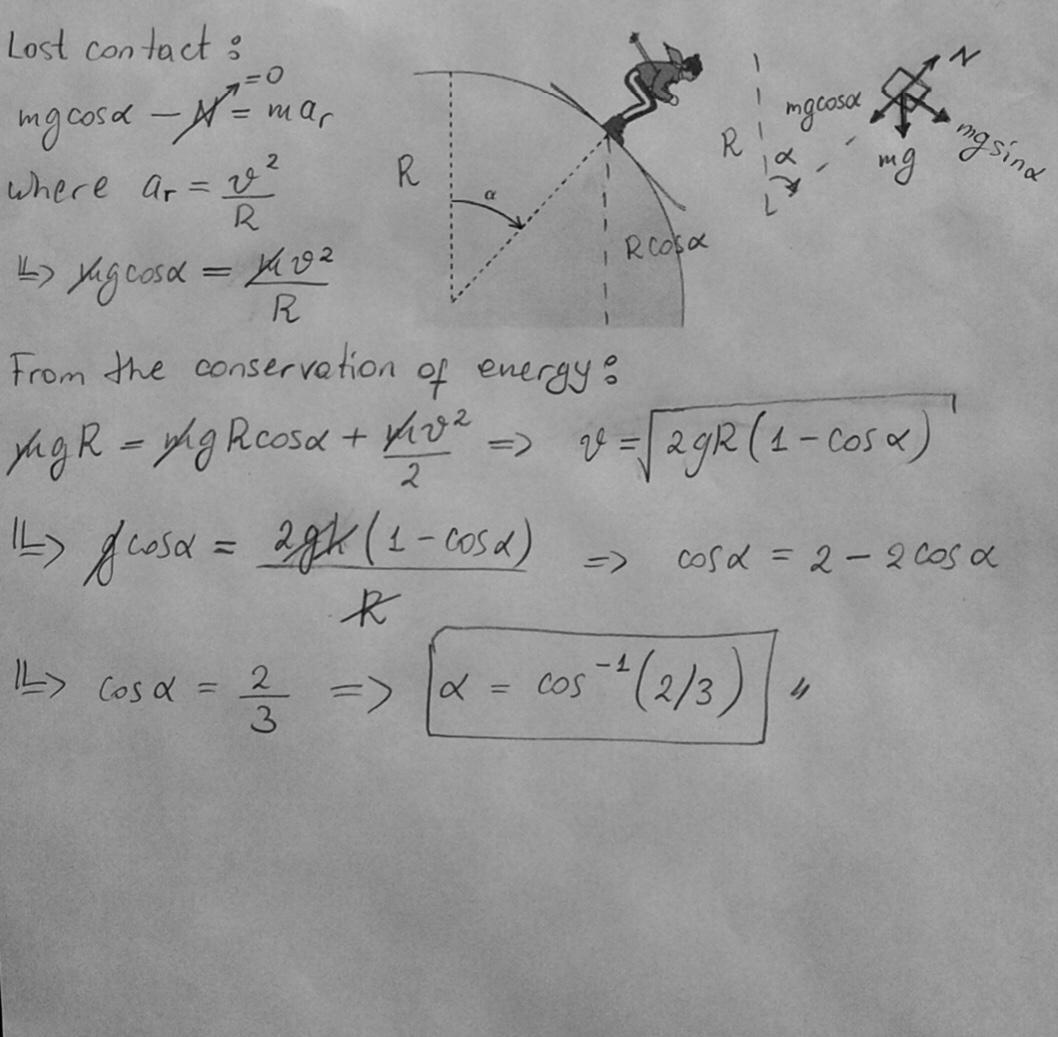 Lost contact :
mgcosα − N = mar
=0
where ar = v²/R
=> mgcosα = mv²/R
R
α
Rcosα
R
α
mgcosα
N
mg
mgsinα
From the conservation of energy :
mgR = mgRcosα + mv²/2 => v = √2gR(1 − cosα)
=> gcosα = 2gR(1 − cosα)/R => cosα = 2 − 2cosα
=> cosα = 2/3 => α = cos⁻¹(2/3) //